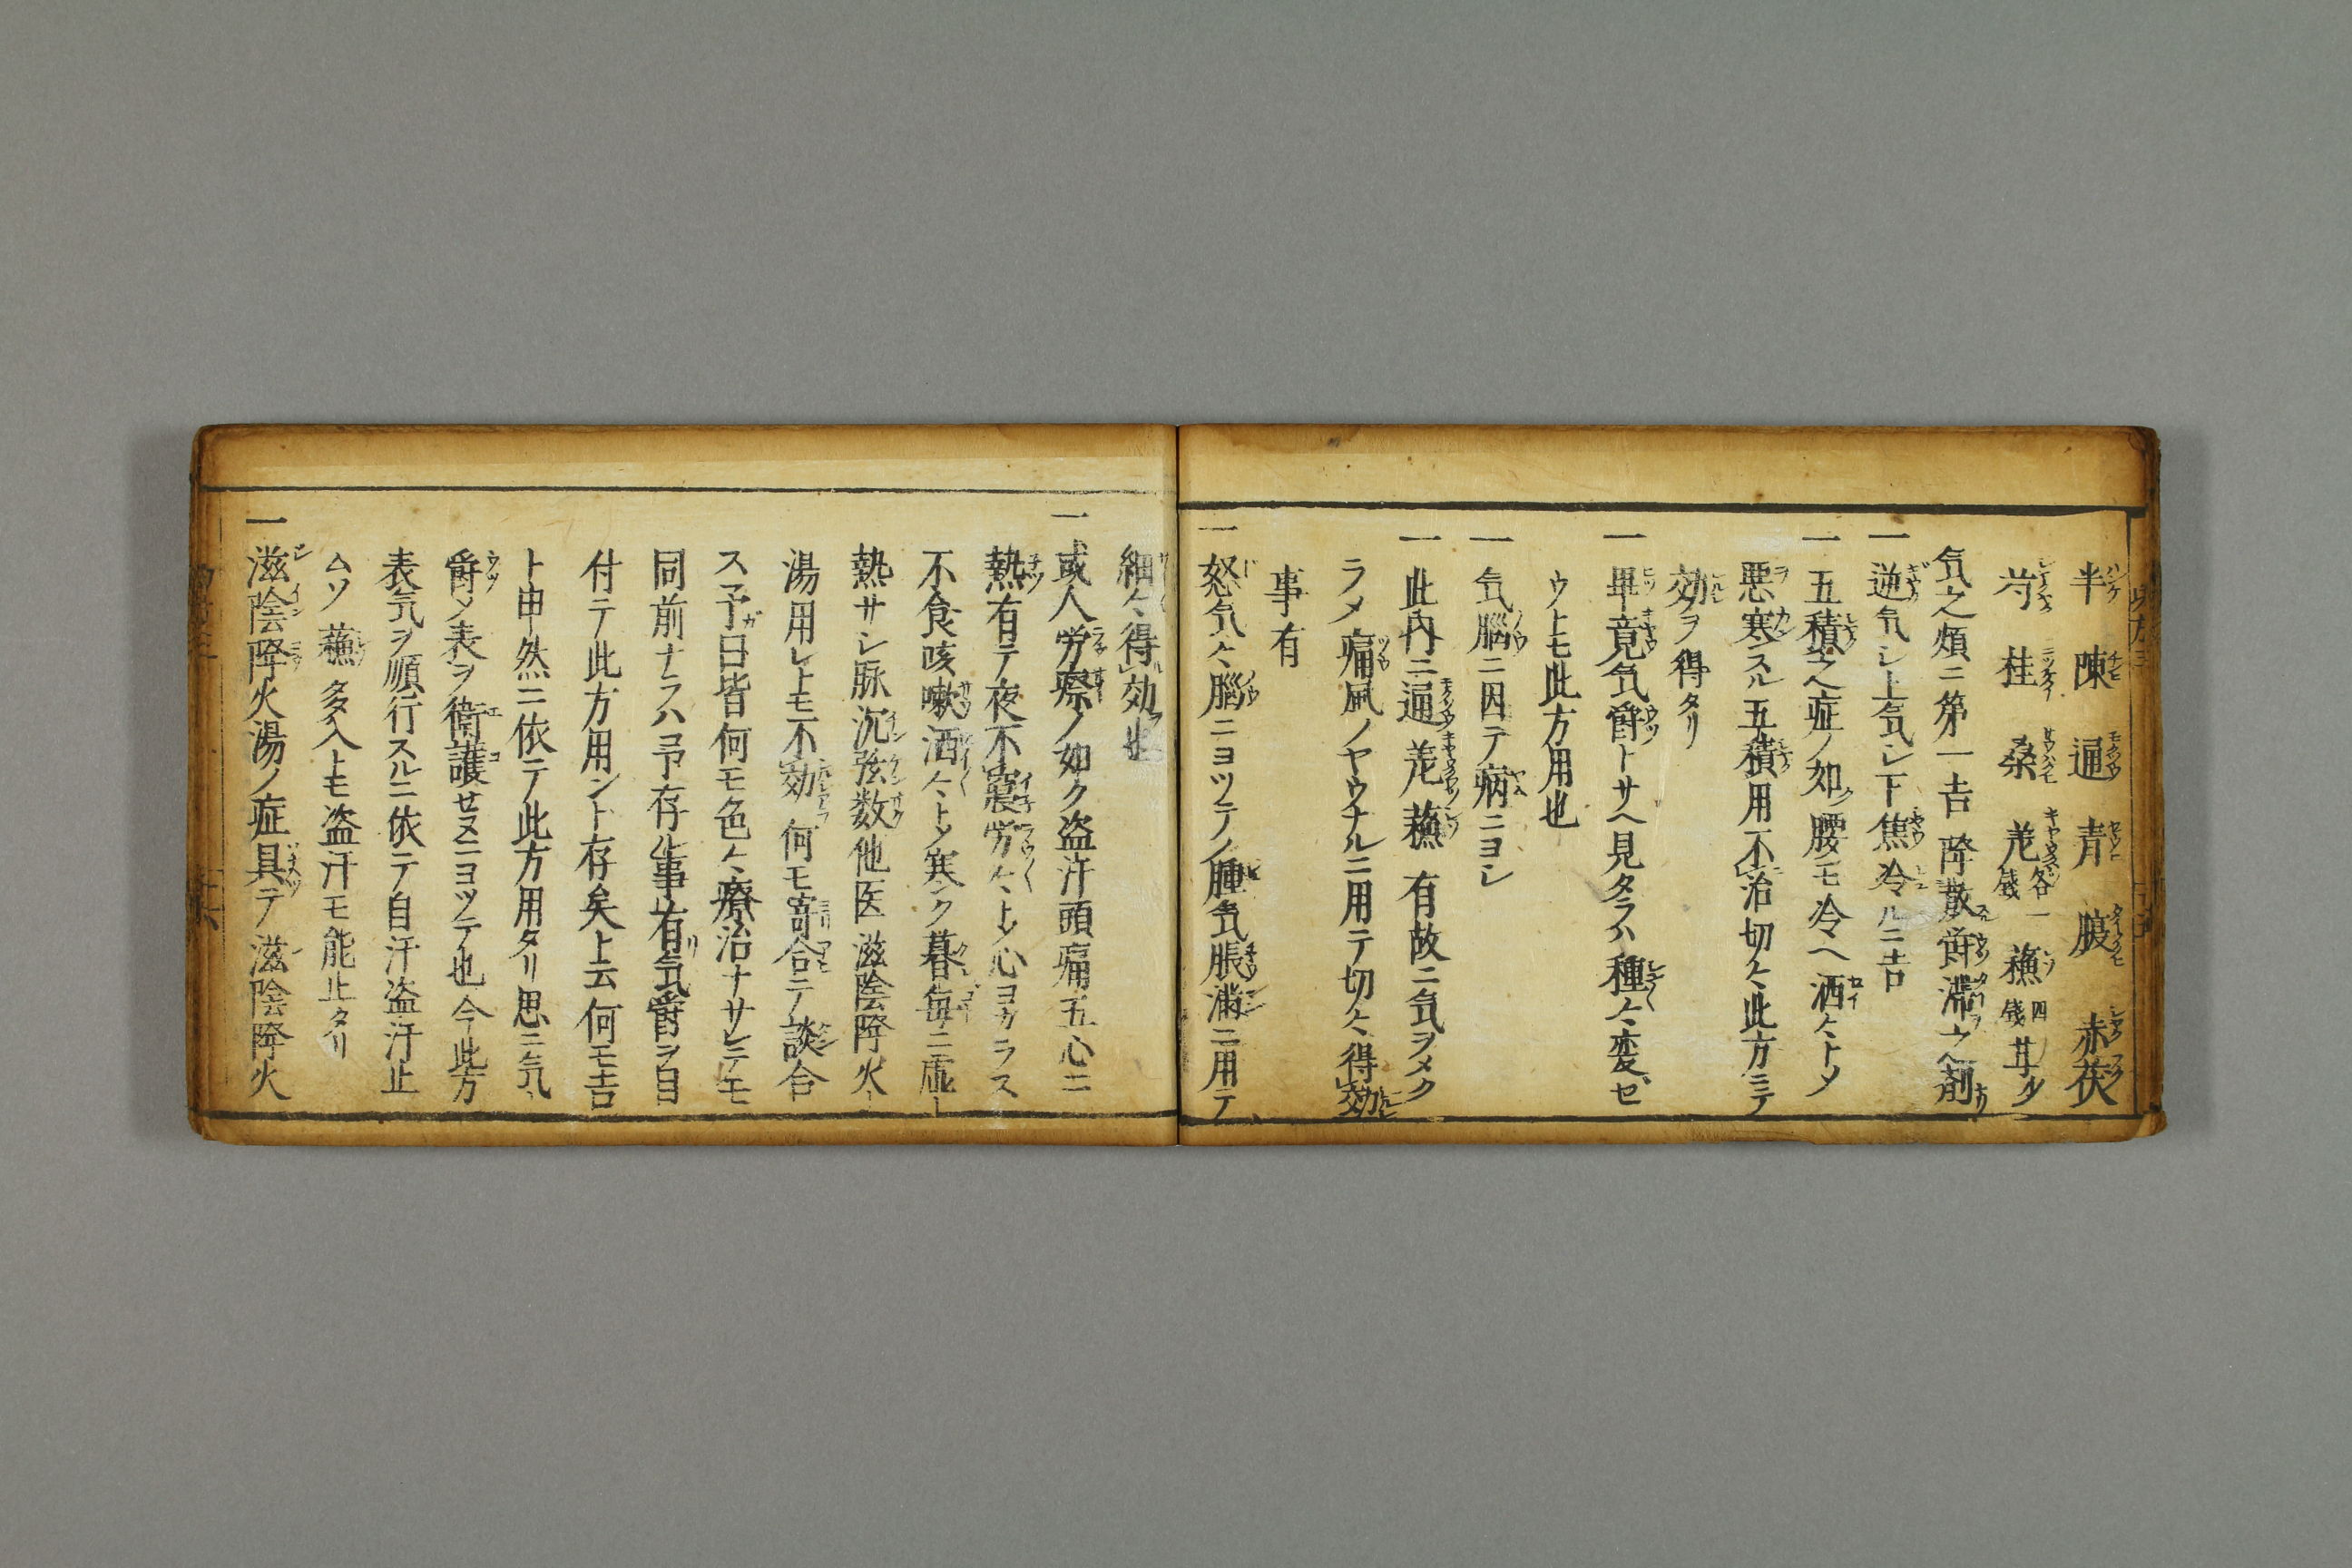 半 陳 通 青 腹 赤茯
芍 桂 桑 羗各一戔 蘓四戔 甘少
気之類ニ第一吉 降散欝滞之剤
一逆気シ上気シ下焦冷ルニ吉
一五積之症ノ如ク腰モ冷ヘ洒々トメ
悪寒スル五積用不治切々此方ニテ
効ヲ得タリ
一畢竟気欝トサヘ見タラハ種々変ゼ
ウトモ此方用也
一気腦ニ因テ病ニヨシ
一此内ニ通羗蘓有故ニ気ヲメク
ラメ痛風ノヤウナルニ用テ切々得効
事有
一怒気々腦ニヨツテノ腫気脹満ニ用テ
細々得効也
一或人労瘵ノ如ク盗汗頭痛五心ニ
熱有テ夜不寤労々トメ心ヨカラス
不食咳嗽洒々トメ寒ク暮毎ニ虚
熱サシ脉沉弦数他医滋陰降火
湯用レトモ不効何モ寄合テ談合
ス予曰皆何モ色々療治ナサレテモ
同前ナラハ予存ル事有気欝ヲ目
付テ此方用ント存矣ト云何モ吉
ト申然ニ依テ此方用タリ思ニ気
欝メ表ヲ衛護せヌニヨツテ也今此方
表気ヲ順行スルニ依テ自汗盗汗止
ムソ蘓多入トモ盗汗モ能止タリ
一滋陰降火湯ノ症具テ滋陰降火